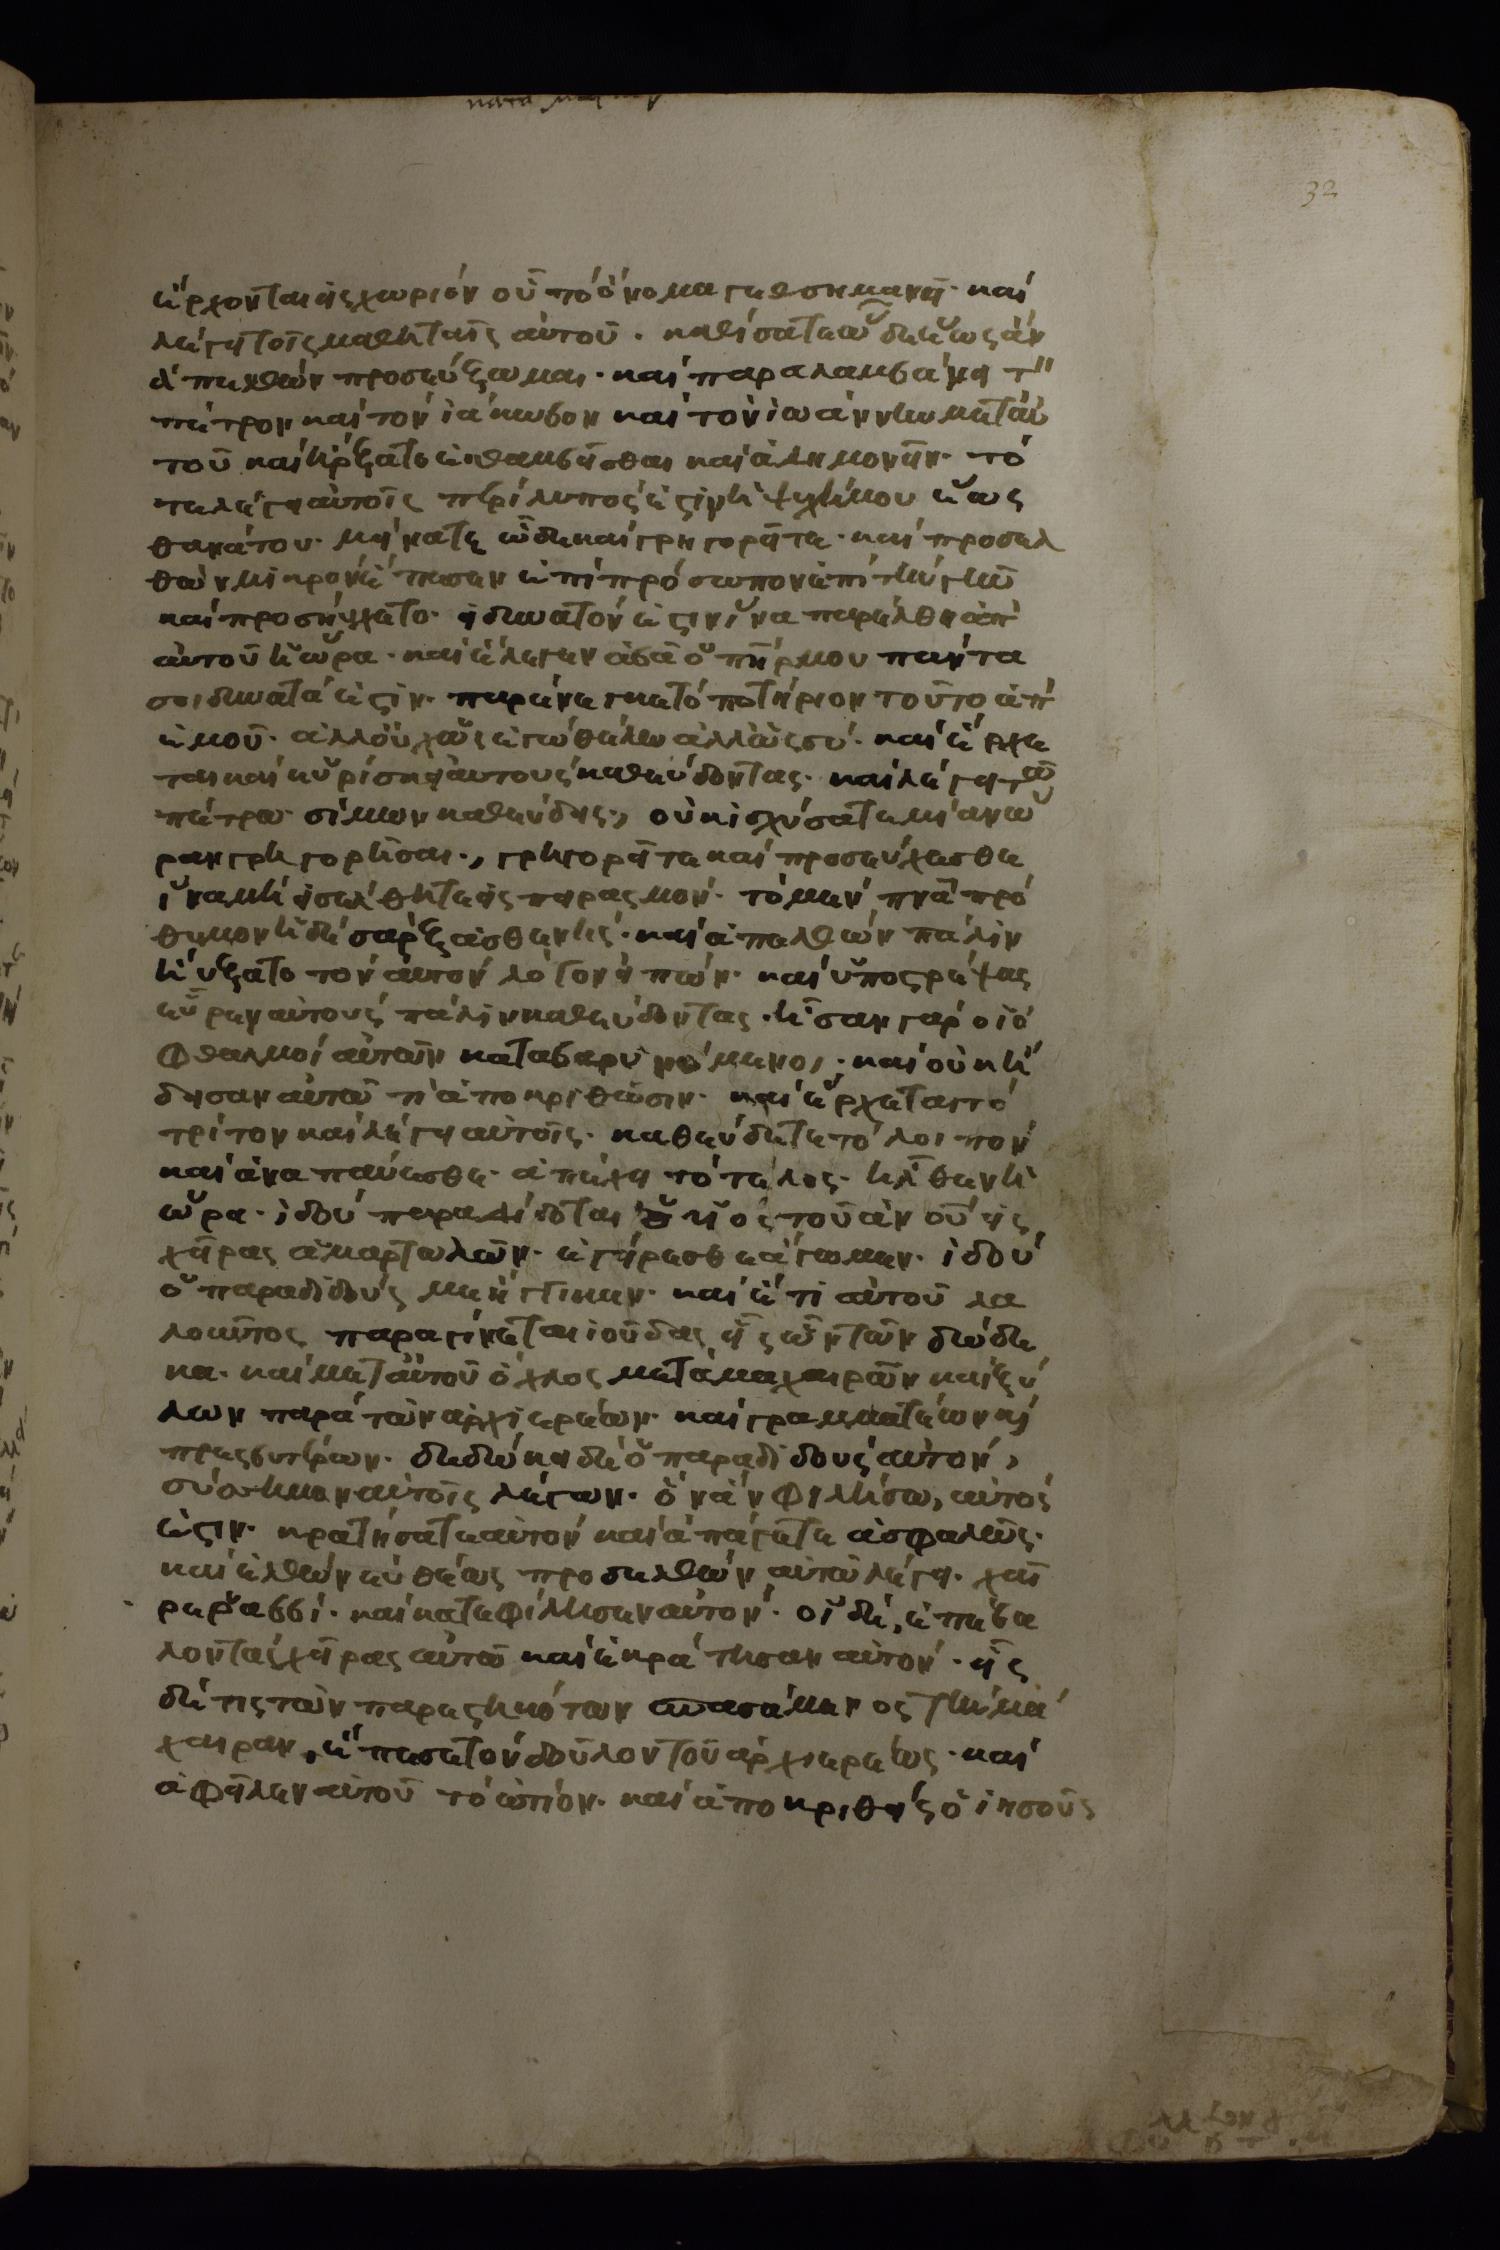 κατα μαρκον
32
ἔρχονται εἰς χωρίον οὗ τὸ ὄνομα γεθσημανεῖ· καὶ
λέγει τοῖς μαθηταῖς αὐτοῦ· καθίσατε ὧδε ἕως ἂν
ἀπελθὼν προσεύξωμαι· καὶ παραλαμβάνει τὸν
πέτρον καὶ τὸν ἰάκωβον καὶ τὸν ἰωάννην μετ αὐ
τοῦ καὶ ἤρξατο ἐκθαμβεῖσθαι καὶ ἀδημονεῖν· τό
τε λέγει αὐτοῖς περίλυπός ἐστιν ἡ ψυχή μου ἕως
θανάτου· μείνατε ὧδε καὶ γρηγορεῖτε· καὶ προσελ
θὼν μικρὸν ἔπεσεν ἐπὶ πρόσωπον ἐπὶ τὴν γῆν
καὶ προσηύχετο· εἰ δυνατόν ἐστιν ἵνα παρέλθη ἀπ
αὐτοῦ ἡ ὥρα· καὶ ἔλεγεν ἀβᾶ ὁ πῆρ μου πάντα
σοι δυνατά ἐστιν· παρένεγκε τὸ ποτήριον τοῦτο ἀπ
ἐμοῦ· ἀλλ οὐχ ὡς ἐγὼ θέλω ἀλλ ὡς σύ· καὶ ἔρχε
ται καὶ εὑρίσκει αὐτοὺς καθεύδοντας· καὶ λέγει τῶ
πέτρω· σίμων καθεύδεις, οὐκ ἰσχύσατε μίαν ὥ
ραν γρηγορῆσαι, γρηγορεῖτε καὶ προσεύχεσθε
ἵνα μὴ εἰσέλθητε εἰς πειρασμόν· τὸ μὲν πνα πρό
θυμον ἡ δὲ σὰρξ ἀσθενής· καὶ ἀπελθὼν πάλιν
ηὔξατο τὸν αὐτὸν λόγον εἰπών· καὶ ὑποστρέψας
εὗρεν αὐτοὺς πάλιν καθεύδοντας· ἦσαν γὰρ οἱ ὀ
φθαλμοὶ αὐτῶν καταβαρυνόμενοι· καὶ οὐκ ἤ
δεισαν αὐτῶ τί ἀποκριθῶσιν· καὶ ἔρχεται τὸ
τρίτον καὶ λέγει αὐτοῖς· καθεύδετε τὸ λοιπὸν
καὶ ἀναπαύεσθε· ἀπέχει τὸ τέλος· ἦλθεν ἡ
ὥρα· ἰδοὺ παραδίδοται ὁ υἱὸς τοῦ ἀνου εἰς
χεῖρας ἁμαρτωλῶν· ἐγείρεσθε ἄγωμεν· ἰδοὺ
ὁ παραδιδούς με ἤγγικεν· καὶ ἔτι αὐτοῦ λα
λοῦντος παραγίνεται ἰούδας εἷς ὢν τῶν δώδε
κα· καὶ μετ αὐτοῦ ὄχλος μετὰ μαχαιρῶν καὶ ξύ
λων παρὰ τῶν ἀρχιερέων· καὶ γραμματέων καὶ
πρεσβυτέρων· δεδώκει δὲ ὁ παραδιδοὺς αὐτόν,
σύσσημον αὐτοῖς λέγων· ὃν ἂν φιλήσω, αὐτός
ἐστιν· κρατήσατε αὐτὸν καὶ ἀπάγετε ἀσφαλῶς·
καὶ ἐλθὼν εὐθέως προσελθὼν αὐτῶ λέγει· χαῖ
ρε ῥαββί· καὶ κατεφίλησεν αὐτόν· οἱ δὲ, ἐπέβα
λον τὰς χεῖρας αὐτῶ καὶ ἐκράτησαν αὐτόν· εἷς
δέ τις τῶν παρεστηκότων σπασάμενος τὴν μά
χαιραν, ἔπαισε τὸν δοῦλον τοῦ ἀρχιερέως· καὶ
ἀφεῖλεν αὐτοῦ τὸ ὠτίον· καὶ ἀποκριθεὶς ὁ ἰησοῦς